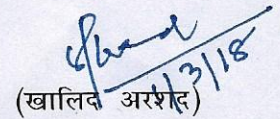 1/3/18
(खालिद अरशद)